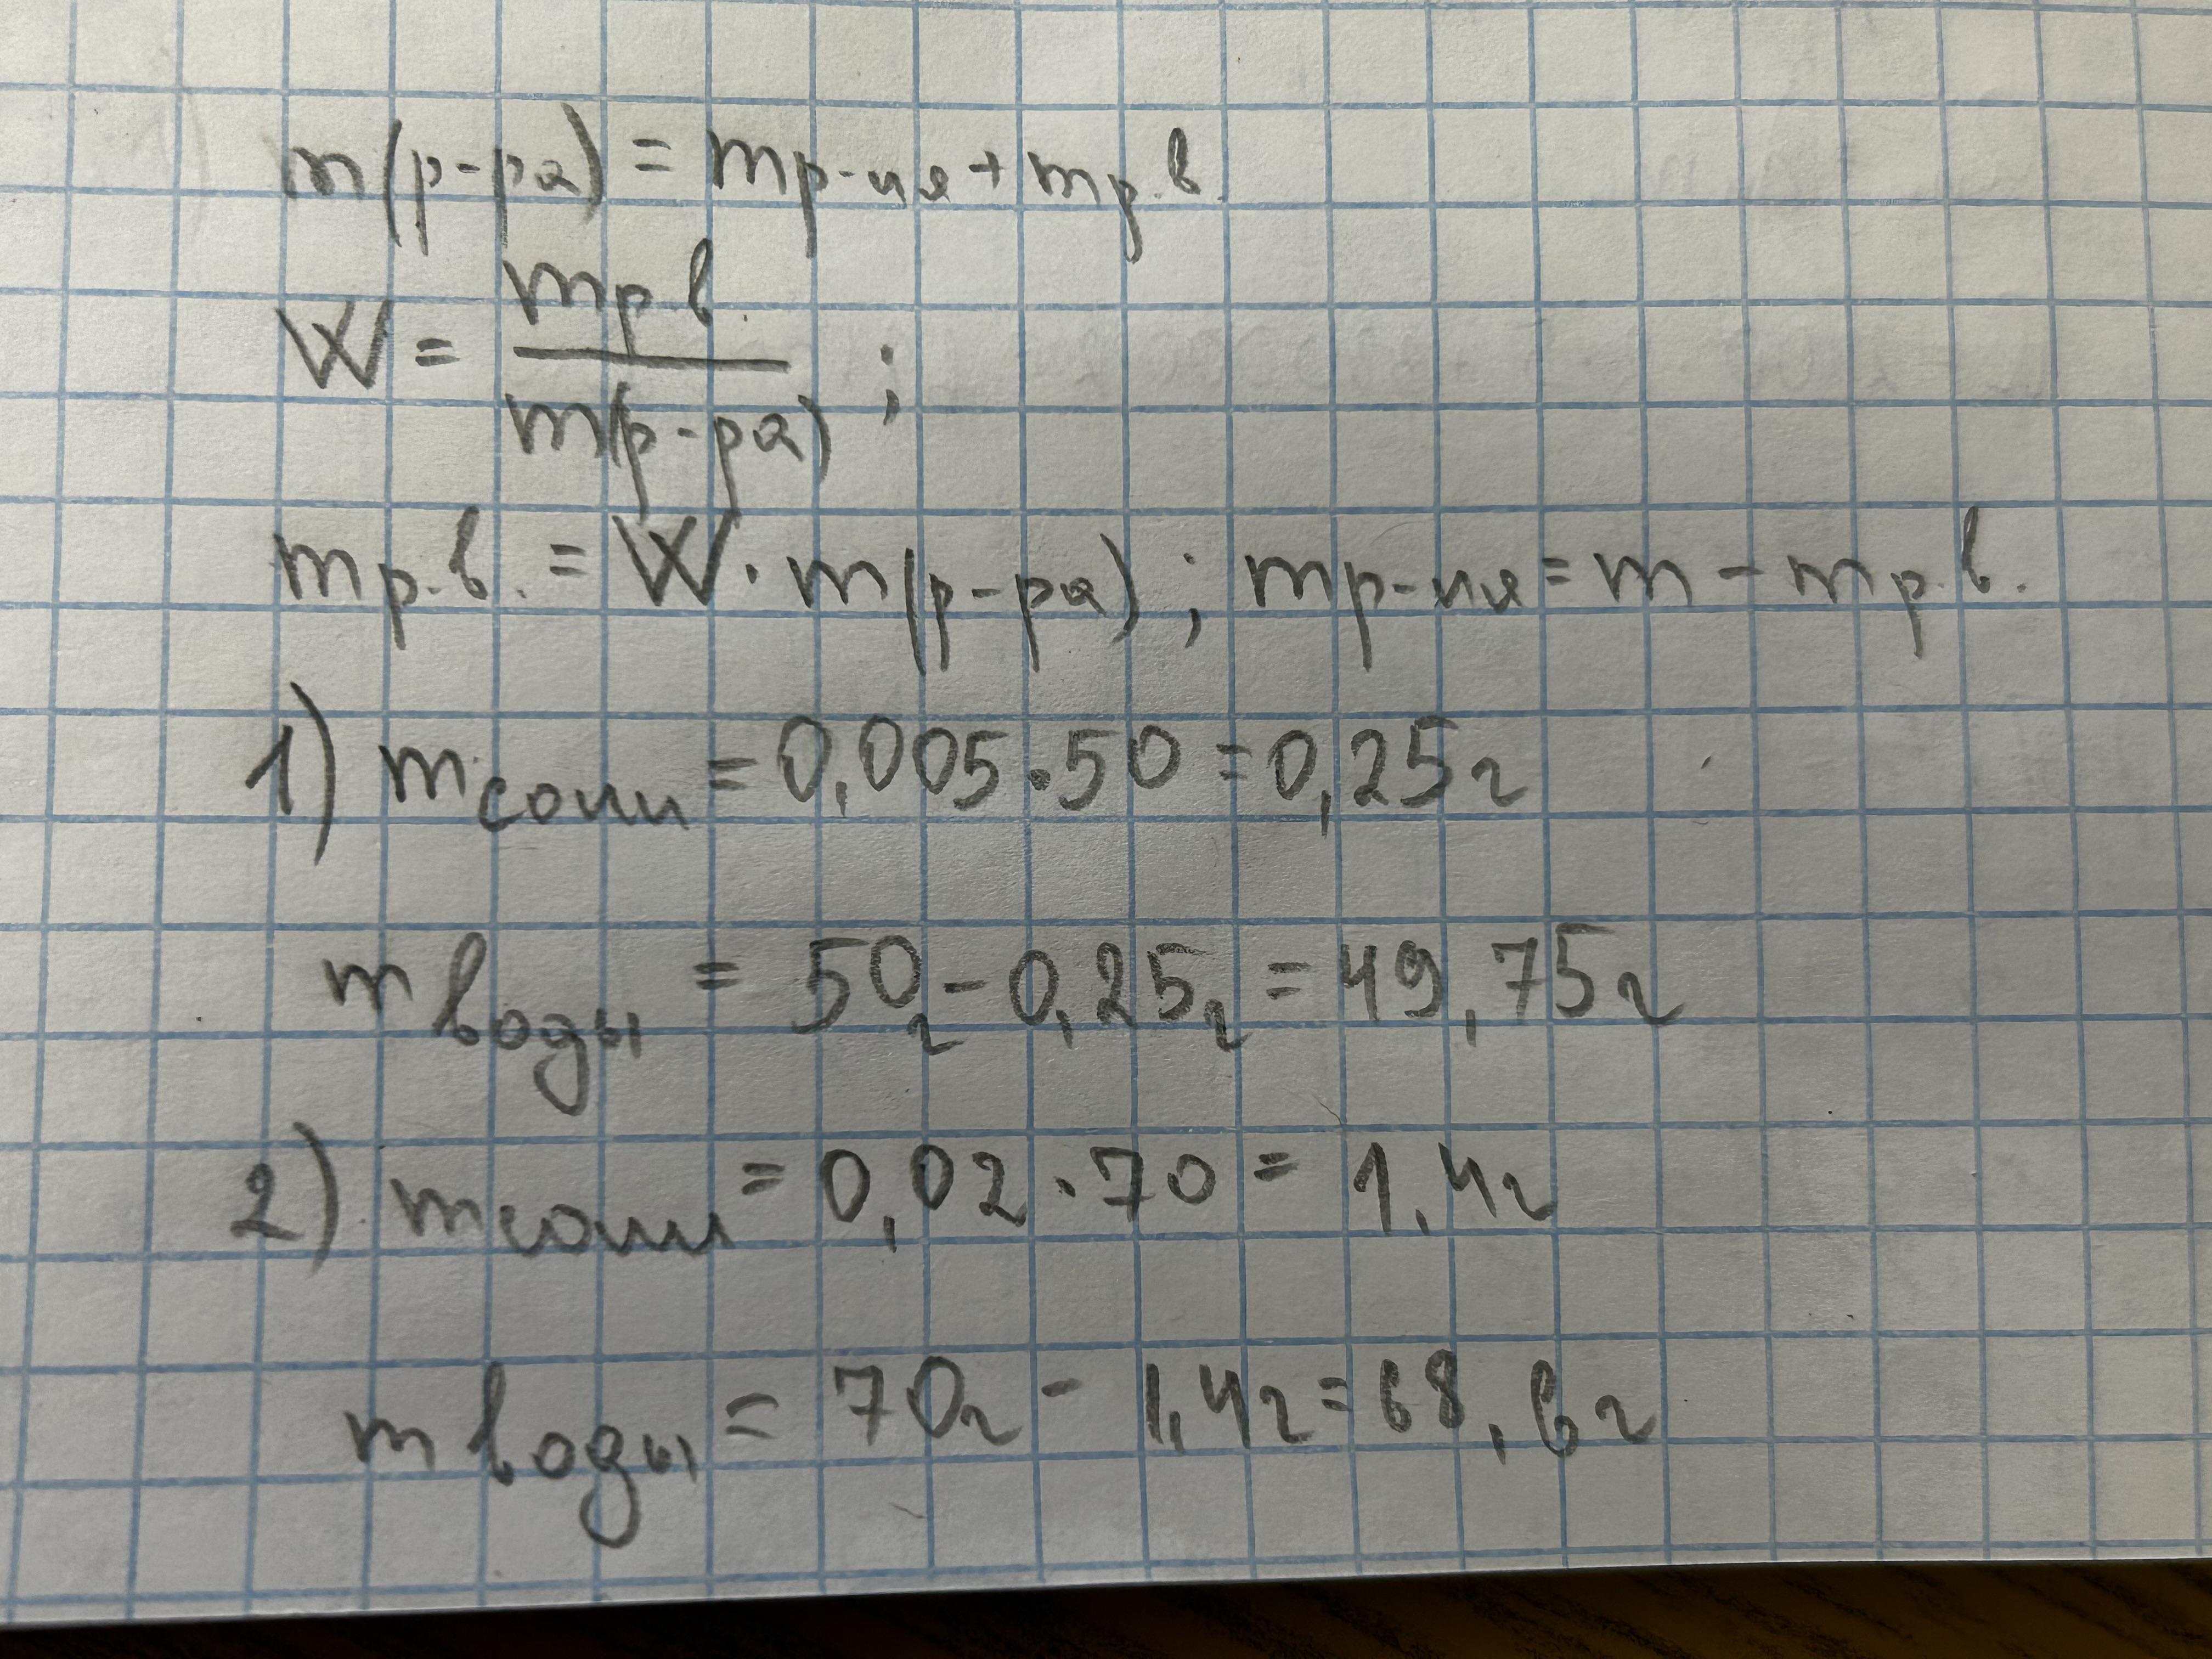 m(р-ра) = mр-ля + mр.в.
W = mр.в. / m(р-ра) ;
mр.в. = W · m(р-ра) ; mр-ля = m - mр.в.
1) mсоли = 0,005 · 50 = 0,25г
mводы = 50г - 0,25г = 49,75г
2) mсоли = 0,02 · 70 = 1,4г
mводы = 70г - 1,4г = 68,6г